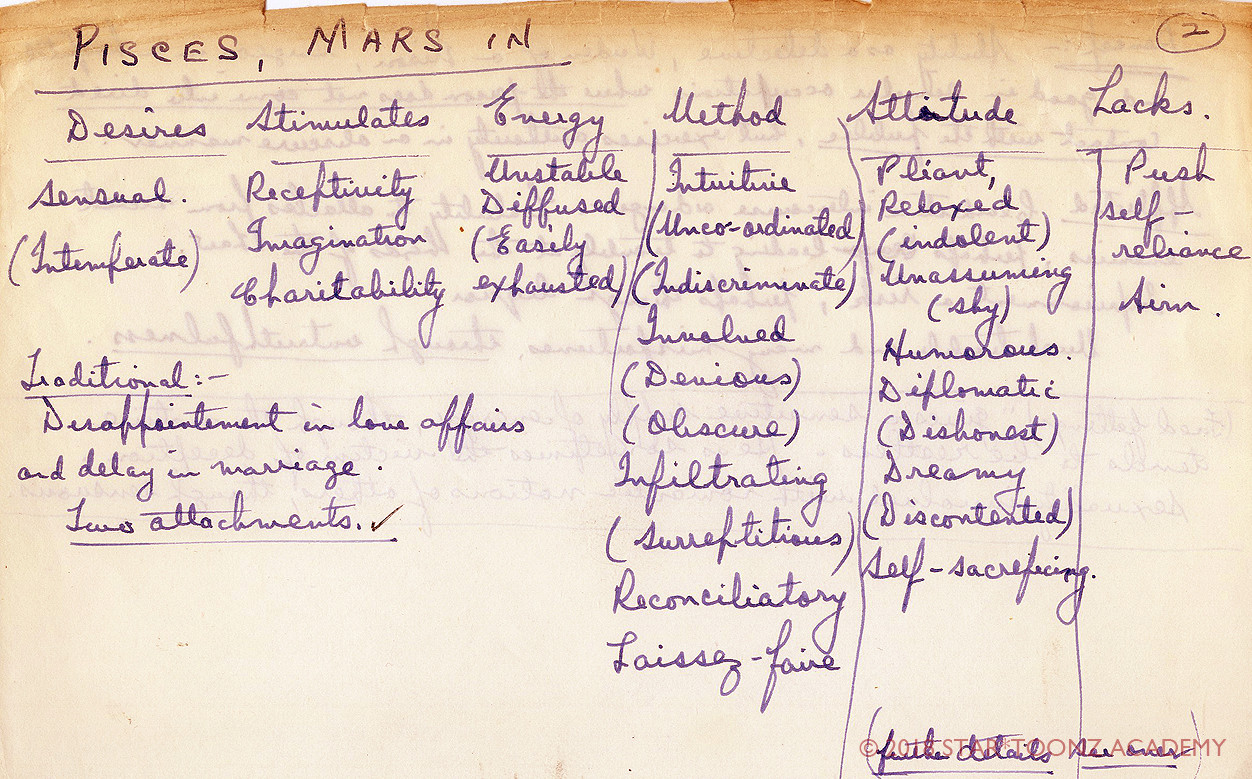 PISCES, MARS IN
2
Desires
Sensual.
(Intemperate)
Stimulates
Receptivity
Imagination
Charitability
Energy
Unstable
Diffused
(Easily
exhausted)
Method
Intuitive
(Unco-ordinated)
(Indiscriminate)
Involved
(Devious)
(Obscure)
Infiltrating
(Surreptitious)
Reconciliatory
Laissez-faire
Attitude
Pliant,
Relaxed
(indolent)
Unassuming
(shy)
Humorous.
Diplomatic
(Dishonest)
Dreamy
(Discontented)
Self-sacreficing.
Lacks.
Push
self-
reliance
Aim.
Traditional:-
Disappointement in love affairs
and delay in marriage.
Two attachments. ✓
(further details see over)
STAR*TOONZ ACADEMY